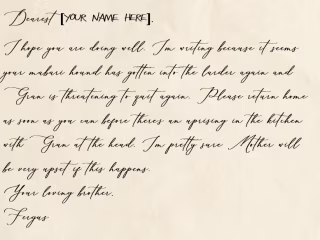 Dearest [YOUR NAME HERE],
I hope you are doing well. I'm writing because it seems
your mabari hound has gotten into the larder again and
Gran is threatening to quit again. Please return home
as soon as you can before there's an uprising in the kitchen
with Gran at the head. I'm pretty sure Mother will
be very upset if this happens.
Your loving brother,
Fergus